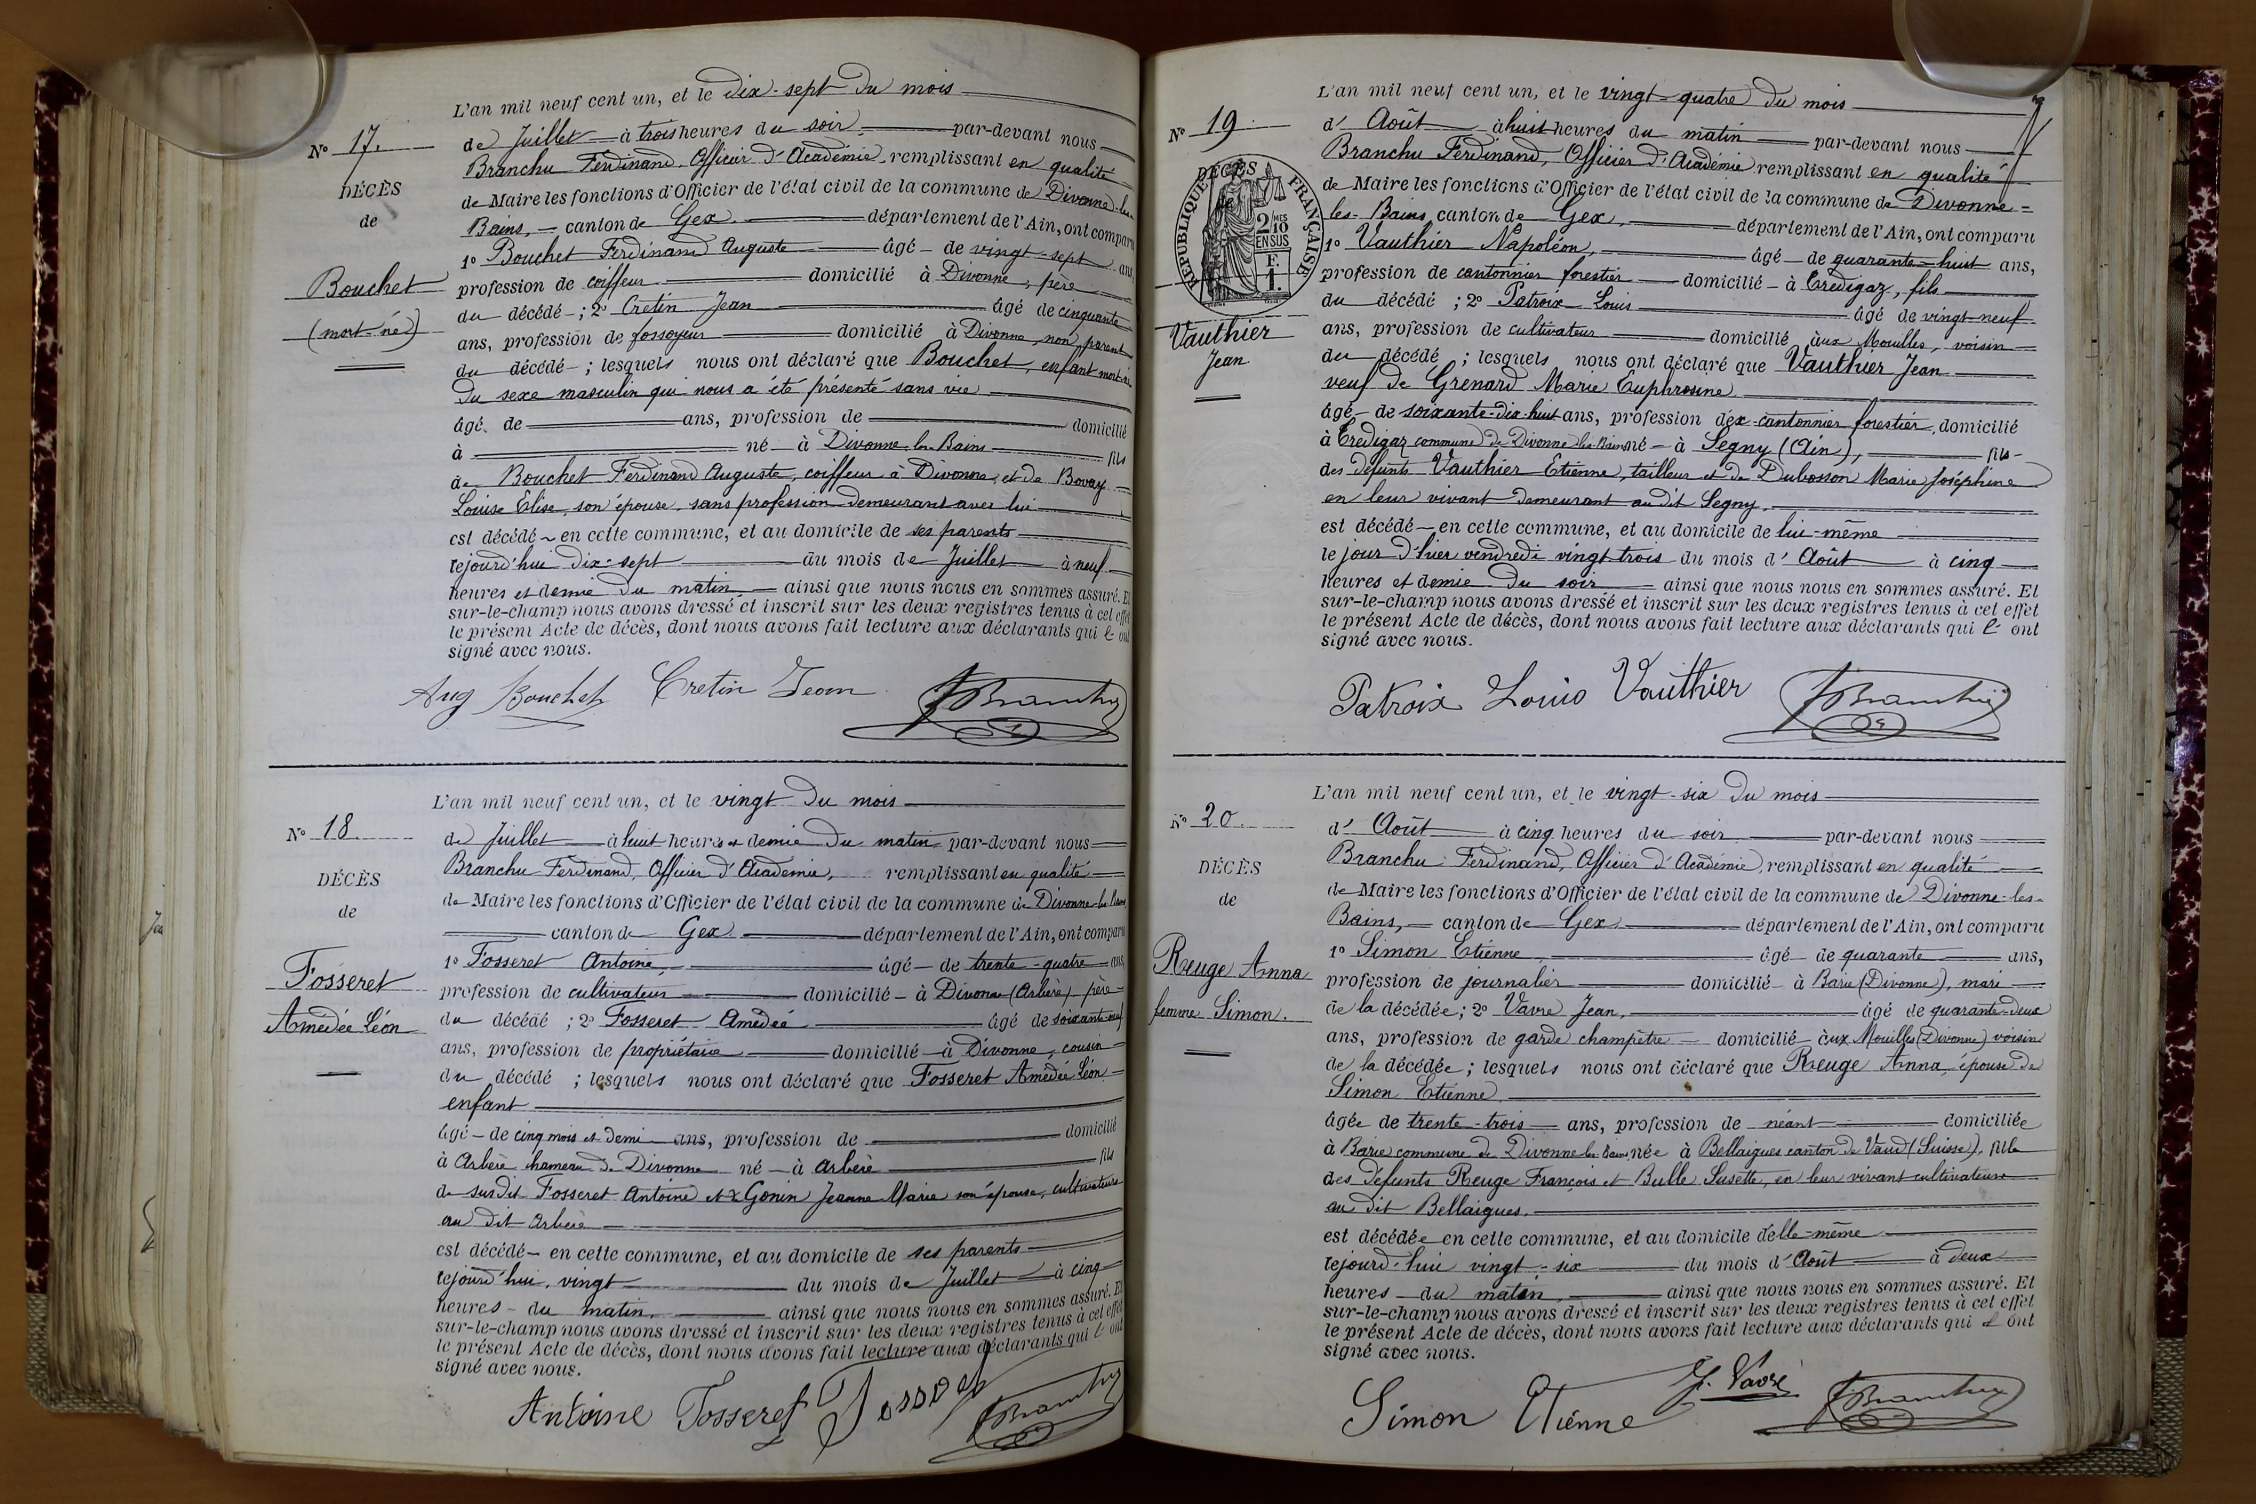 L'an mil neuf cent un, et le dix-sept du mois
N° 17.
de Juillet à trois heures du soir par-devant nous
Branchu Ferdinand, Officier d'Académie, remplissant en qualité
DÉCÈS
de Maire les fonctions d'Officier de l'état civil de la commune de Divonne-les-
de
Bains, canton de Gex département de l'Ain, ont comparu
1° Bouchet Ferdinand Auguste âgé de vingt-sept ans,
Bouchet
profession de coiffeur domicilié à Divonne, père
(mort-né)
du décédé ; 2° Cretin Jean âgé de cinquante
ans, profession de fossoyeur domicilié à Divonne, non parent
du décédé ; lesquels nous ont déclaré que Bouchet, enfant mort-né
du sexe masculin qui nous a été présenté sans vie
âgé de ans, profession de domicilié
à né à Divonne-les-Bains fils
de Bouchet Ferdinand Auguste, coiffeur à Divonne, et de Bovay
Louise Elise, son épouse, sans profession demeurant avec lui
est décédé en cette commune, et au domicile de ses parents
cejourd'hui dix-sept du mois de Juillet à neuf
heures et demie du matin ainsi que nous nous en sommes assuré. Et
sur-le-champ nous avons dressé et inscrit sur les deux registres tenus à cet effet
le présent Acte de décès, dont nous avons fait lecture aux déclarants qui l' ont
signé avec nous.
Aug Bouchet Cretin Jean FBranchu
L'an mil neuf cent un, et le vingt du mois
N° 18.
de Juillet à huit heures et demie du matin par-devant nous
Branchu Ferdinand, Officier d'Académie, remplissant en qualité
DÉCÈS
de Maire les fonctions d'Officier de l'état civil de la commune de Divonne-les-Bains
de
canton de Gex département de l'Ain, ont comparu
1° Fosseret Antoine, âgé de trente-quatre ans,
Fosseret
profession de cultivateur domicilié à Divonne (Arbère) père
Amédée Léon
du décédé ; 2° Fosseret Amédée âgé de soixante-neuf
ans, profession de propriétaire domicilié à Divonne, cousin
du décédé ; lesquels nous ont déclaré que Fosseret Amédée Léon
enfant
âgé de cinq mois et demi ans, profession de domicilié
à Arbère hameau de Divonne né à Arbère fils
de susdit Fosseret Antoine et de Gonin Jeanne Marie son épouse, cultivateurs
au dit Arbère
est décédé en cette commune, et au domicile de ses parents
cejourd'hui vingt du mois de Juillet à cinq
heures du matin, ainsi que nous nous en sommes assuré. Et
sur-le-champ nous avons dressé et inscrit sur les deux registres tenus à cet effet
le présent Acte de décès, dont nous avons fait lecture aux déclarants qui l' ont
signé avec nous.
Antoine Fosseret Fosseret FBranchu
L'an mil neuf cent un, et le vingt-quatre du mois
N° 19
d' Août à huit heures du matin par-devant nous
Branchu Ferdinand, Officier d'Académie remplissant en qualité
DÉCÈS
de Maire les fonctions d'Officier de l'état civil de la commune de Divonne-
RÉPUBLIQUE FRANÇAISE
2/10 MES EN SUS
1 F.
les-Bains, canton de Gex, département de l'Ain, ont comparu
1° Vauthier Napoléon, âgé de quarante-huit ans,
profession de cantonnier forestier domicilié à Crédigaz, fils
du décédé ; 2° Patroix Louis âgé de vingt-neuf
Vauthier
Jean
ans, profession de cultivateur domicilié aux Mouilles, voisin
du décédé ; lesquels nous ont déclaré que Vauthier Jean
veuf de Grenard Marie Euphrosine
âgé de soixante-dix-huit ans, profession d'ex-cantonnier forestier, domicilié
à Crédigaz commune de Divonne-les-Bains né à Segny (Ain), fils
des défunts Vauthier Etienne, tailleur et de Dubosson Marie Joséphine
en leur vivant demeurant au dit Segny.
est décédé en cette commune, et au domicile de lui-même
le jour d'hier vendredi vingt trois du mois d' Août à cinq
heures et demie du soir ainsi que nous nous en sommes assuré. Et
sur-le-champ nous avons dressé et inscrit sur les deux registres tenus à cet effet
le présent Acte de décès, dont nous avons fait lecture aux déclarants qui l' ont
signé avec nous.
Patroix Louis Vauthier FBranchu
L'an mil neuf cent un, et le vingt-six du mois
N° 20.
d' Août à cinq heures du soir par-devant nous
Branchu Ferdinand, Officier d'Académie, remplissant en qualité
DÉCÈS
de Maire les fonctions d'Officier de l'état civil de la commune de Divonne-les-
de
Bains, canton de Gex département de l'Ain, ont comparu
1° Simon Etienne âgé de quarante ans,
Reuge Anna
profession de journalier domicilié à Barie (Divonne), mari
femme Simon.
de la décédée ; 2° Vavre Jean, âgé de quarante-deux
ans, profession de garde champêtre domicilié aux Mouilles (Divonne) voisin
de la décédée ; lesquels nous ont déclaré que Reuge Anna, épouse de
Simon Etienne
âgée de trente-trois ans, profession de néant domiciliée
à Barie commune de Divonne-les-Bains née à Bellaigues canton de Vaud (Suisse), fille
des défunts Reuge François et Bulle Susette, en leur vivant cultivateurs
au dit Bellaigues.
est décédée en cette commune, et au domicile d'elle-même
cejourd'hui vingt-six du mois d' Août à deux
heures du matin, ainsi que nous nous en sommes assuré. Et
sur-le-champ nous avons dressé et inscrit sur les deux registres tenus à cet effet
le présent Acte de décès, dont nous avons fait lecture aux déclarants qui l' ont
signé avec nous.
Simon Etiénne J. Vavre FBranchu